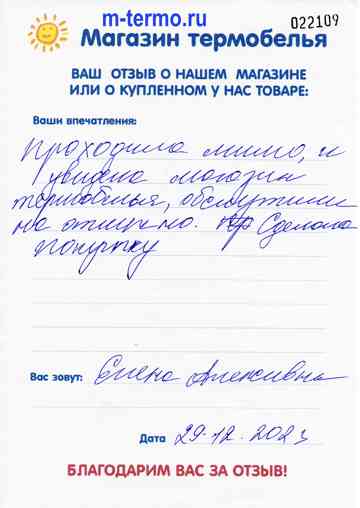 m-termo.ru
022109
Магазин термобелья
ВАШ ОТЗЫВ О НАШЕМ МАГАЗИНЕ
ИЛИ О КУПЛЕННОМ У НАС ТОВАРЕ:
Ваши впечатления:
Проходила мимо, и
увидела магазин
термобелья, обслужили
на отлично. Сделала
покупку
Вас зовут: Елена Алексивна
Дата 29.12.2023
БЛАГОДАРИМ ВАС ЗА ОТЗЫВ!